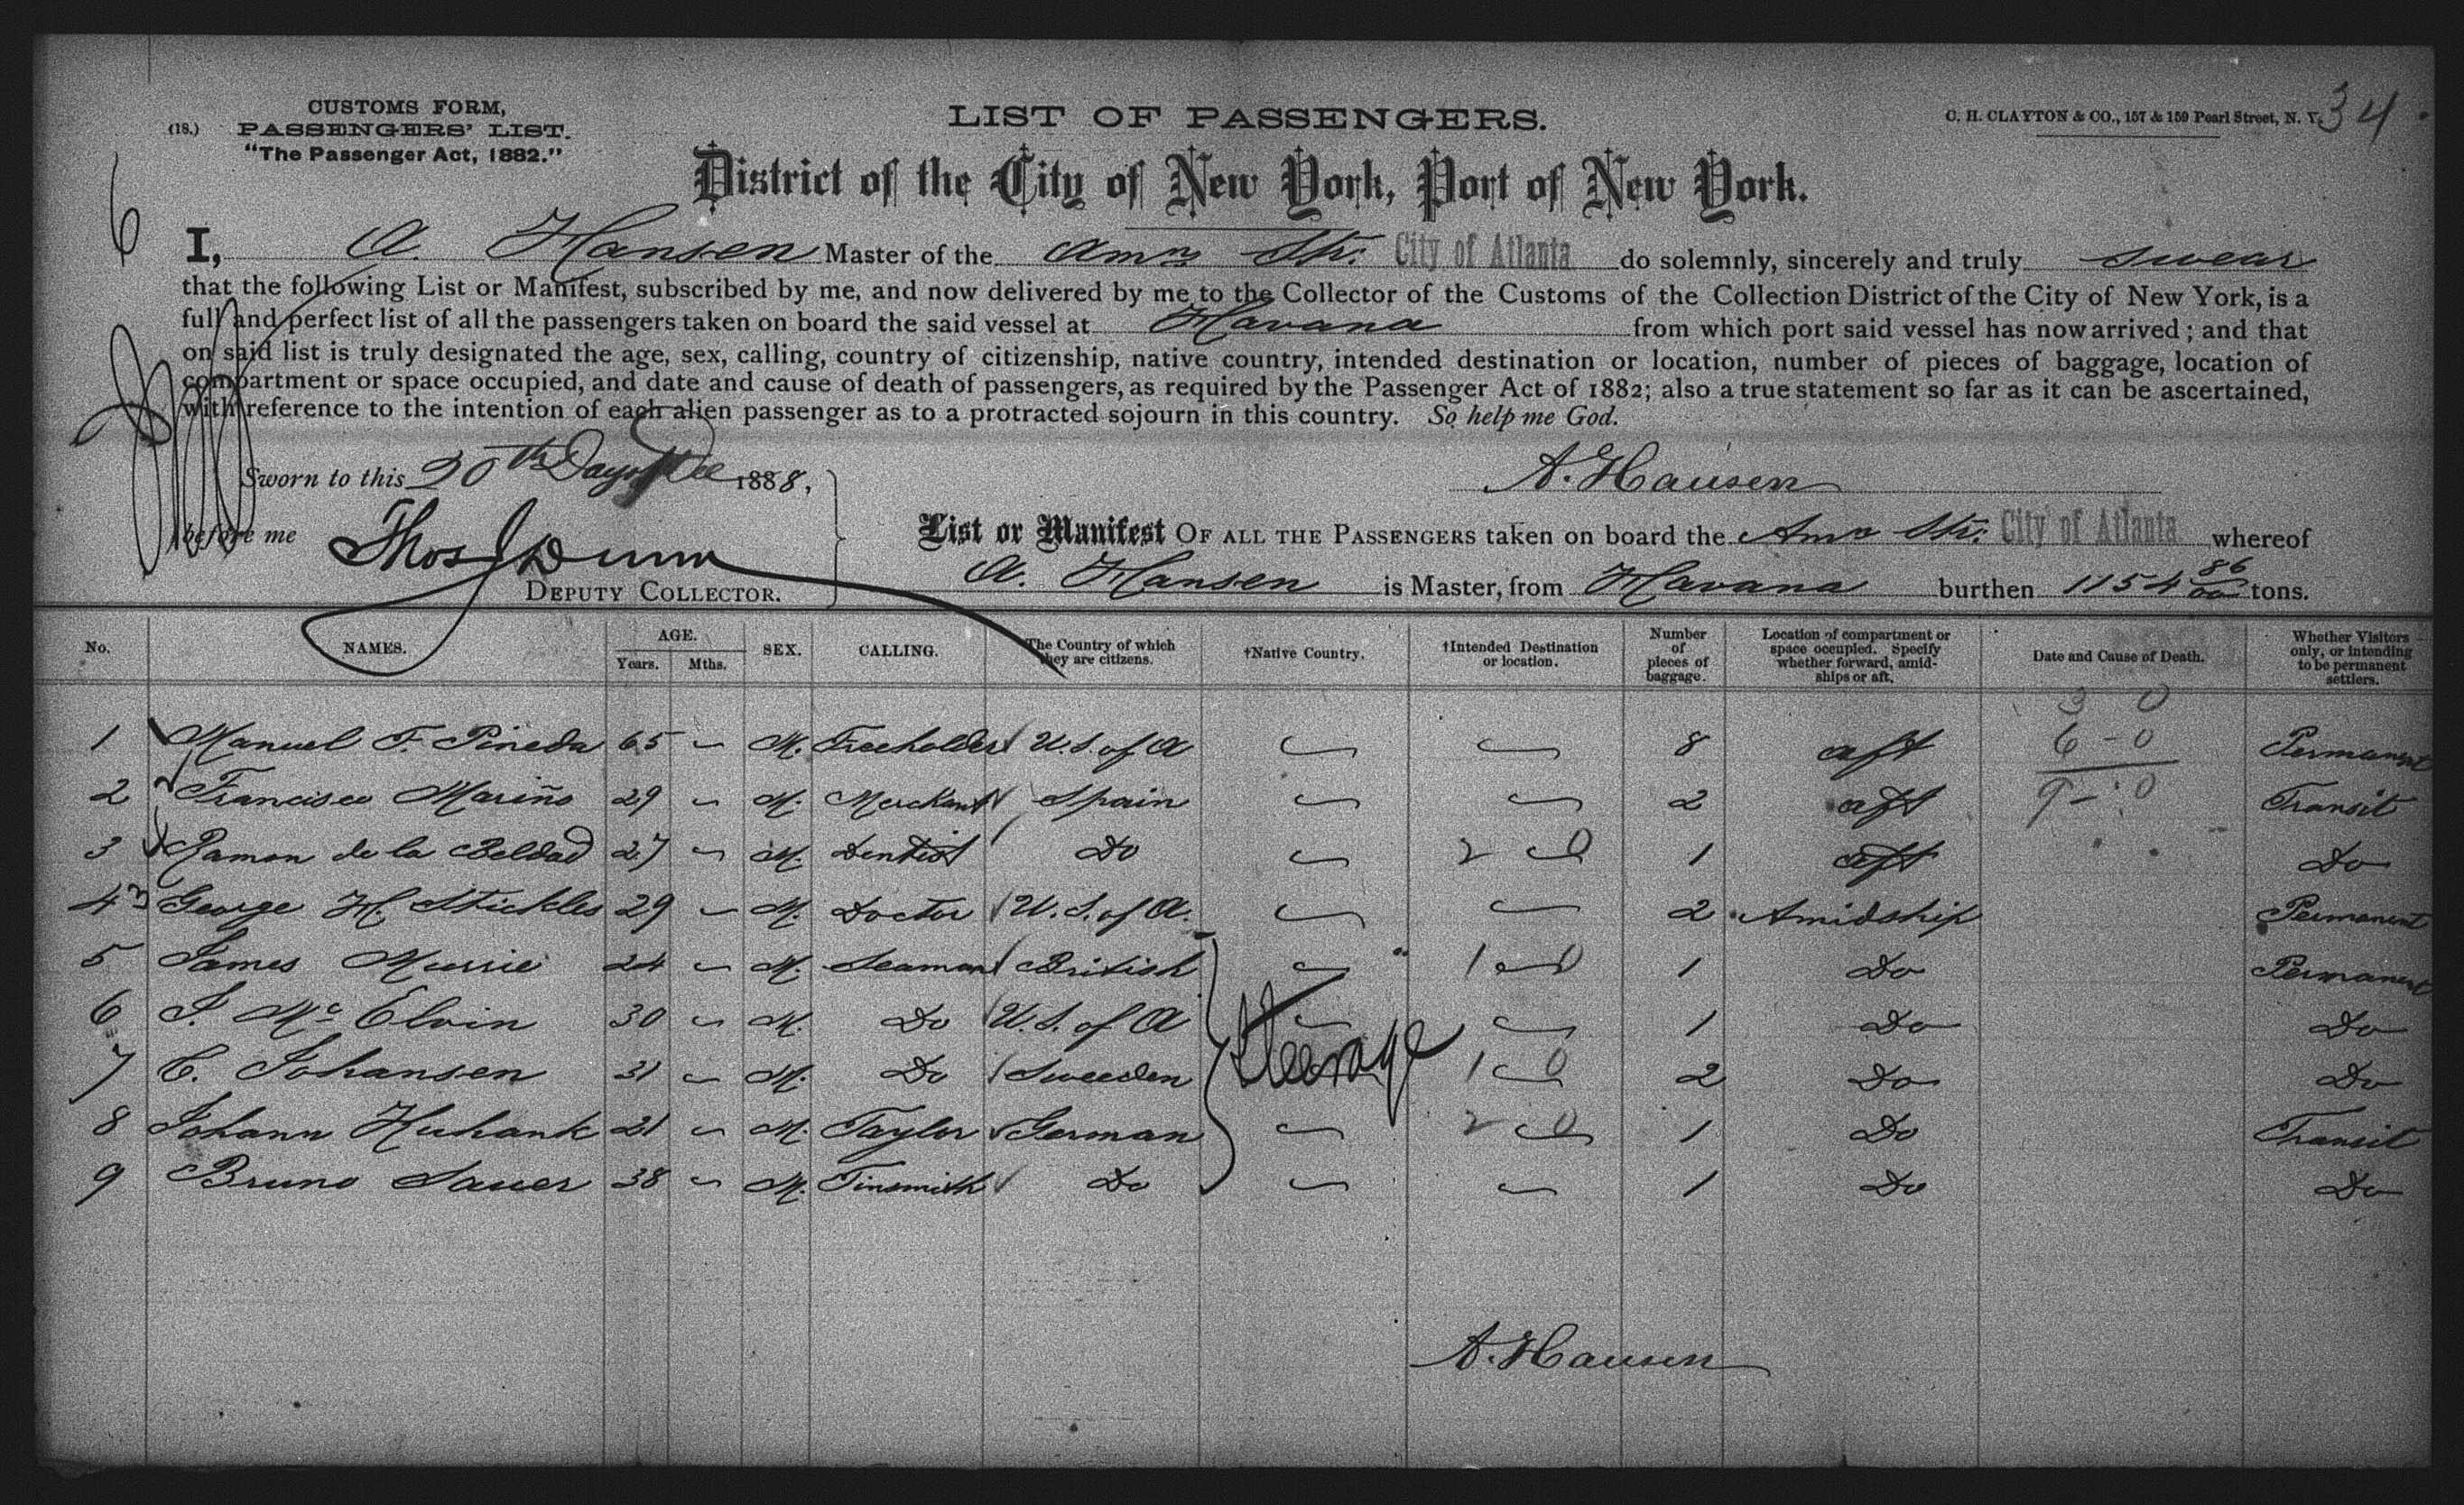 CUSTOMS FORM,
(18.) PASSENGERS' LIST.
"The Passenger Act, 1882."
LIST OF PASSENGERS.
C. H. CLAYTON & CO., 157 & 159 Pearl Street, N. Y.
34
District of the City of New York, Port of New York.
6
I, A. Hansen Master of the Amn Str. City of Atlanta do solemnly, sincerely and truly swear
that the following List or Manifest, subscribed by me, and now delivered by me to the Collector of the Customs of the Collection District of the City of New York, is a
full and perfect list of all the passengers taken on board the said vessel at Havana from which port said vessel has now arrived; and that
on said list is truly designated the age, sex, calling, country of citizenship, native country, intended destination or location, number of pieces of baggage, location of
compartment or space occupied, and date and cause of death of passengers, as required by the Passenger Act of 1882; also a true statement so far as it can be ascertained,
with reference to the intention of each alien passenger as to a protracted sojourn in this country. So help me God.
Sworn to this 20th Day of Dec 1888,
A. Hansen
before me Thos J Dunn
DEPUTY COLLECTOR.
List or Manifest OF ALL THE PASSENGERS taken on board the Amn Str. City of Atlanta whereof
A. Hansen is Master, from Havana burthen 1154 86/00 tons.
No. NAMES. AGE. Years. Mths. SEX. CALLING. The Country of which they are citizens. †Native Country. †Intended Destination or location. Number of pieces of baggage. Location of compartment or space occupied. Specify whether forward, amidships or aft. Date and Cause of Death. Whether Visitors only, or intending to be permanent settlers.
3 0
1 Manuel F. Pineda 65 M. Freeholder U.S. of A 8 aft 6 - 0 Permanent
2 Francisco Mariño 29 M. Merchant Spain 2 aft 9 - 0 Transit
3 Ramon de la Beldad 27 M. Dentist Do 2 0 1 aft Do
4 George H. Stickles 29 M. Doctor U.S. of A. 2 Amidship Permanent
5 James Murrie 24 M. Seaman British 1 0 1 Do Permanent
6 J. McElvin 30 M. Do U.S. of A 1 Do Do
Steerage
7 C. Johansen 31 M. Do Sweeden 1 0 2 Do Do
8 Johann Huhank 21 M. Taylor German 2 0 1 Do Transit
9 Bruno Sauer 38 M. Tinsmith Do 1 Do Do
A. Hansen